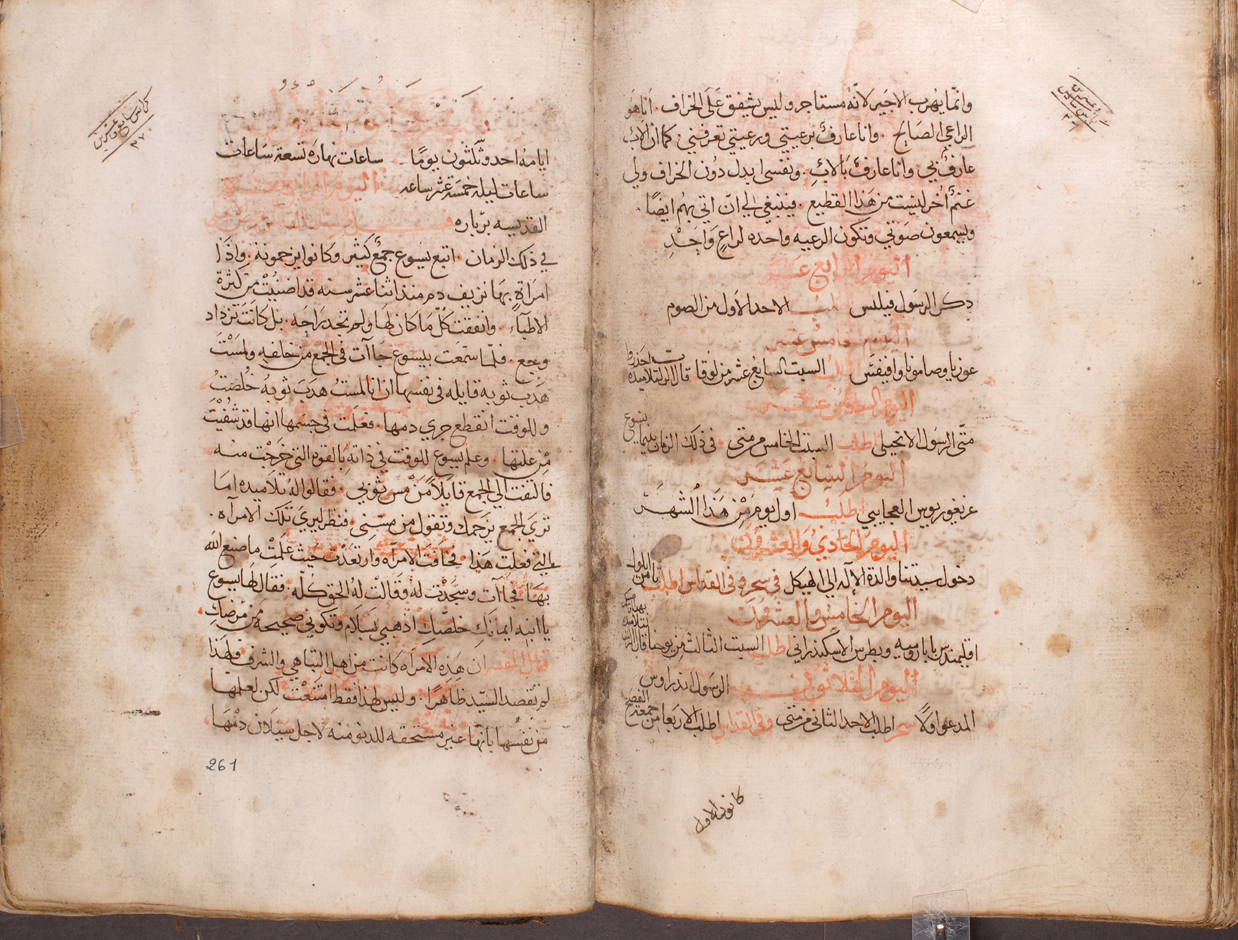 وانما يهرب الاجير لانه مستاجر وليس يشفق على الخراف . اناهو
الراعي الصالح . وانا عارف برعيتي ورعيتي تعرفني . كما ان الاب
عارف بي وانا عارف بالاب . ونفسي ابدل دون الخراف ولي
غنم اخر ليست من هذا القطيع . فينبغي لي ان اتي بهم ايضا .
ويسمعون صوتي وتكون الرعيه واحده لراع واحد
اليوم الرابع عشر
ذكر الرسول فيلبس اطلب الاحد الاول من الصوم
اليوم الخامس عشر
غوريا وصامونا وافيفس اطلب السبت السابع عشر من لوقا قال الرب لتلاميذه
اليوم السادس عشر
متى الرسول الانجيلي اطلب السبت الخامس من متى . في ذلك الزمان بينما يسوع
اليوم السابع عشر
غريغوريوس العجايبي اطلب اول يوم من هذا الشهر
اليوم الحادي والعشرون
دخول سيدتنا والدة الاله الى الهيكل في سحره وفي القداس اطلب ثامن ايلول
اليوم الخامس والعشرون
اقليمندس بابا روميه وبطرس الاسكندراني اطلب السبت الثالث من يوحنا قال الرب لتلاميذه
اليوم الثلاثون فيه الرسول اندراوس
المدعو اولا سحر اطلب الاحد الثاني من متى وفي القداس اطلب الاربعا من جمعة الفصح
كانون الاول
كراس سابع وعشرين
٢٧
ايامه احد وثلثون يوما . ساعات نهاره تسعة ساعات
ساعات ليله خمسة عشر ساعه اليوم الرابع
القديسه برباره
في ذلك الزمان . اتبع يسوع جمع كثير وكانوا يزحمونه . واذا
امراة بها نزيف دم منذ اثنا عشر سنه قد اصنيت من كثرة
الاطباء . وانفقت كل ما كان لها ولم تجد راحه . بل كانت تزداد
وجع . فلما سمعت بيسوع جاات في الجمع من خلفه ولمست
هدب ثوبه قايله في نفسها ان انا لمست هدب ثوبه خلصت
وللوقت انقطع جري دمها . فعلمت في جسمها انها قد شفيت
من علتها . وعلم يسوع للوقت في ذاته بالقوه التي خرجت منه
فالتفت الى الجمع قايلا من مس ثوبي . فقالوا له تلاميذه اما
ترى الجمع يزحمك وتقول من مسني . فنظر ليرى تلك الامراه
التي فعلت هذا . فخافت الامراه وارتعدت حيث علمت ما صنع الله
بها . فجاات وسجدت له وقالت له الحق كله . فقال لها يسوع
يا ابنه ايمانك خلصك اذهبي بسلام وتكوني صحيحه من مرضك
قال المفسر ان هذه الامراه كانت من اهل التباهي والشرف فلهذا
لم تقصد السيد ظاهرا . وليس لهذا فقط امتنعت لكن لعلمها
من نفسها بانها غير مستحقه للدنو منه لاجل سيلان دمها
261